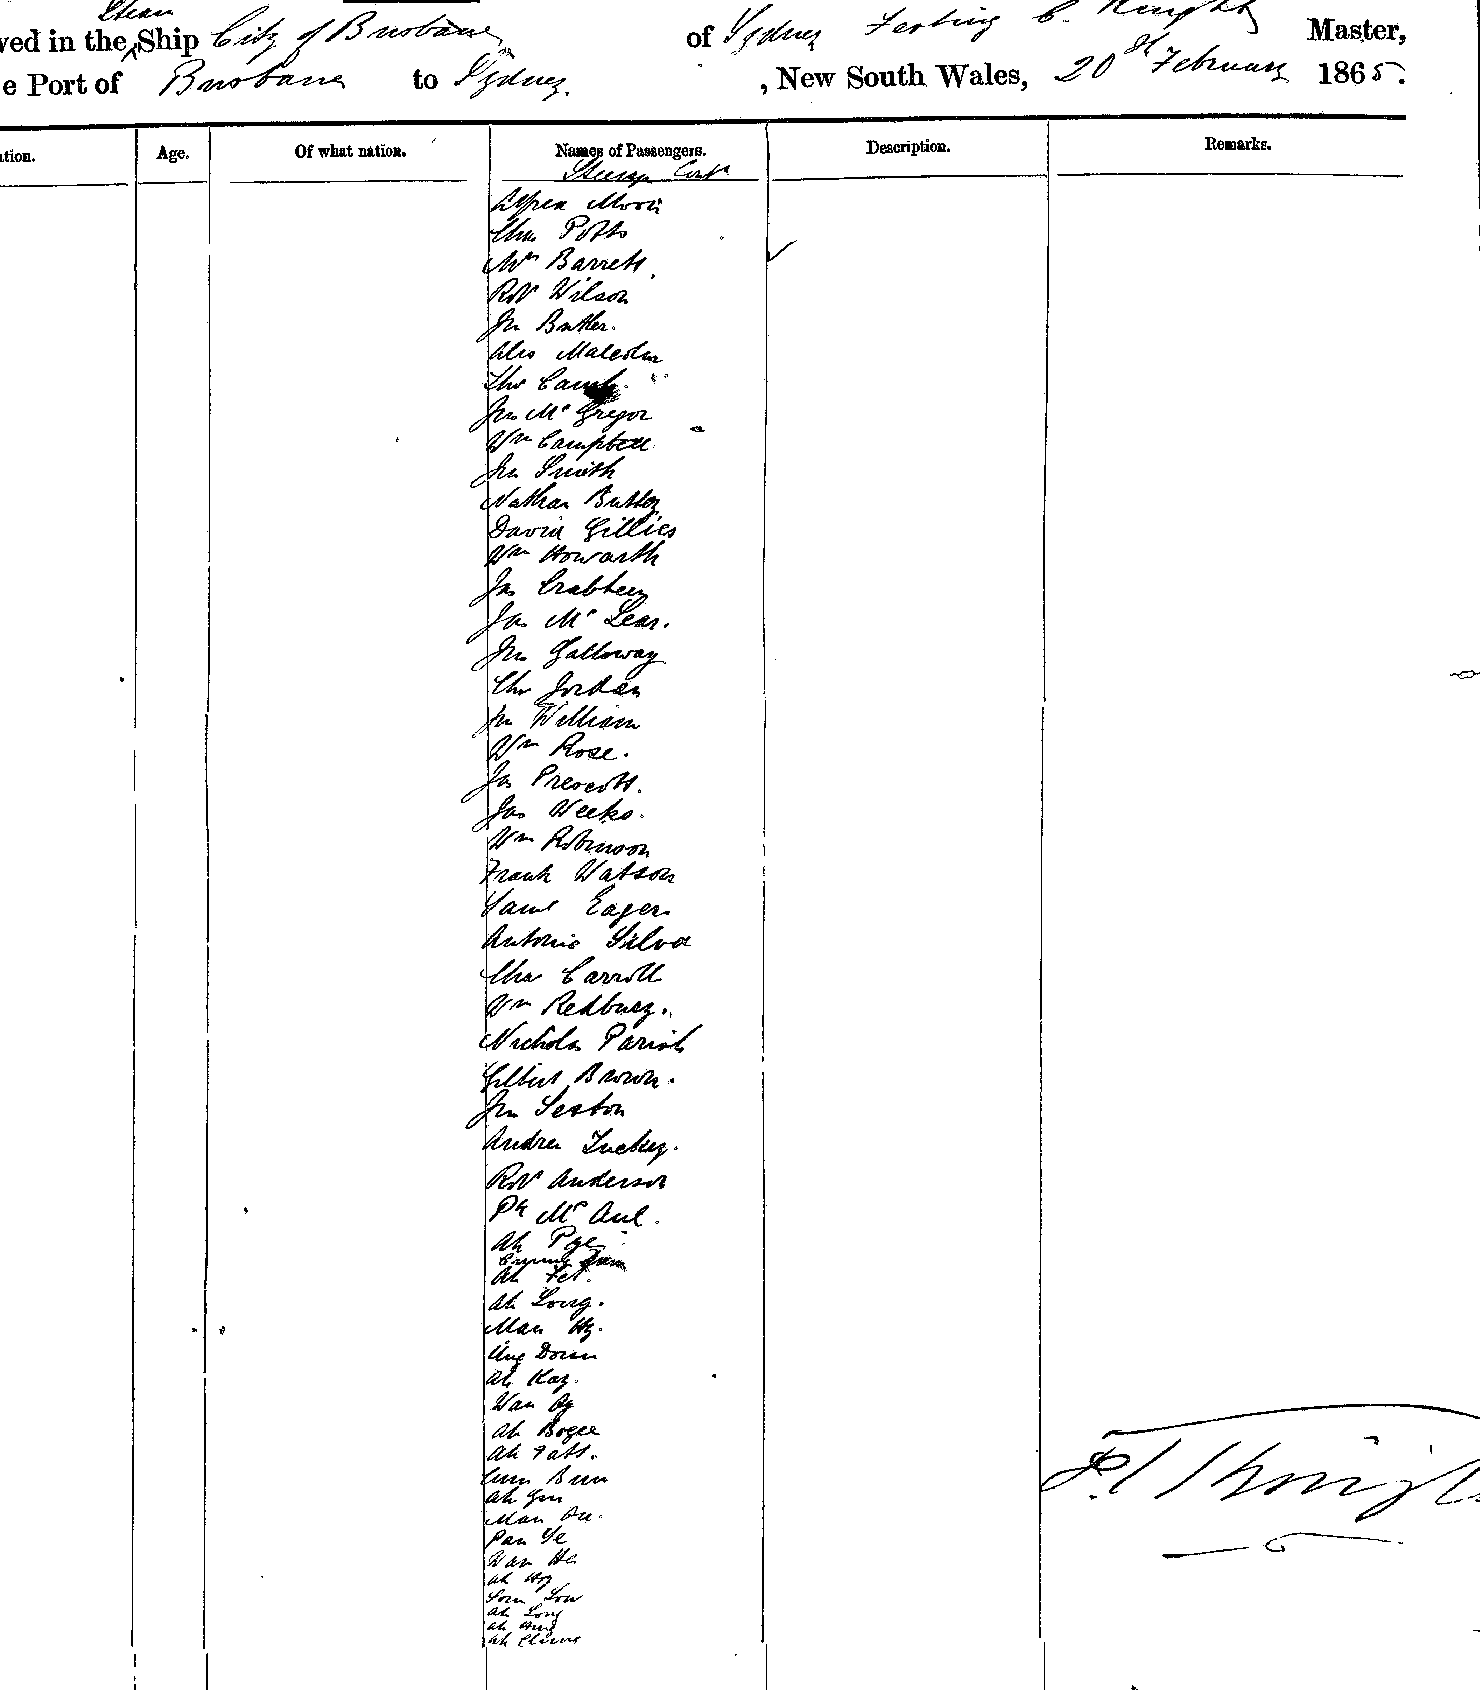 Steam
ved in the Ship City of Brisbane of Sydney C. Knight Master,
e Port of Brisbane to Sydney. , New South Wales, 20th February 1865.
tion. Age. Of what nation. Names of Passengers. Description. Remarks.
Steerage Contd
Alfred Moore
Chas Potts
Wm Barrett
Robt Wilson
Jn Butler.
Alex Malcolm
Thos
Jno McGregor
Wm Campbell
Jno Smith
Nathan Butler
David Gillies
Wm Howarth
Jas Crabtree
Jas Mc Lear.
Jno Galloway
Chs Jordan
Jn William
Wm Rose.
Jas Prescott.
Jas Weeks.
Wm Robinson
Frank Watson
Saml Eager
Antonio Silva
Chas Carroll
Wm Redbury.
Nicholas Parish
Gilbert Brown.
Jno Sexton
Andrew Tuckey.
Robt Anderson
Pk Mc Aul.
Ah Pye
Ah Fet.
Ah Long.
Man Hy.
Ung Doun
Ah Kay.
Wan Oy
Ah Bogee
Ah Fatt.
Cum Bun
Ah Gun
Man
Pan Ye
Wan He
Ah Hoy
Som Low
Ah Long
Ah Hung
Ah Chung
Knight